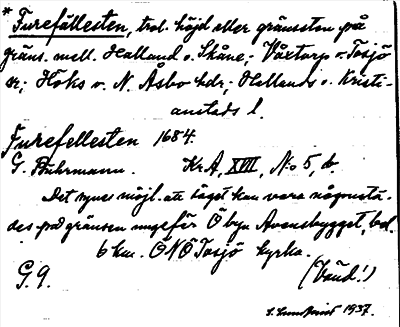 * Furefällesten, trol. höjd eller gränssten på
gräns. mell. Halland o. Skåne; Våxtorp o. Tosjö
sr; Höks o. N. Åsbo hdr; Hallands o. Kristi-
anstads l.
Furefellesten 1684.
G. Buhrmann. Kr A, XVII, No 5, b.
Det synes möjl. att läget kan vara någonstä-
des på gränsen ungefär O byn Avensbygget, bel.
6 km. ÖNÖ Tosjö kyrka.
G. 9. (Vaud!)
1937.